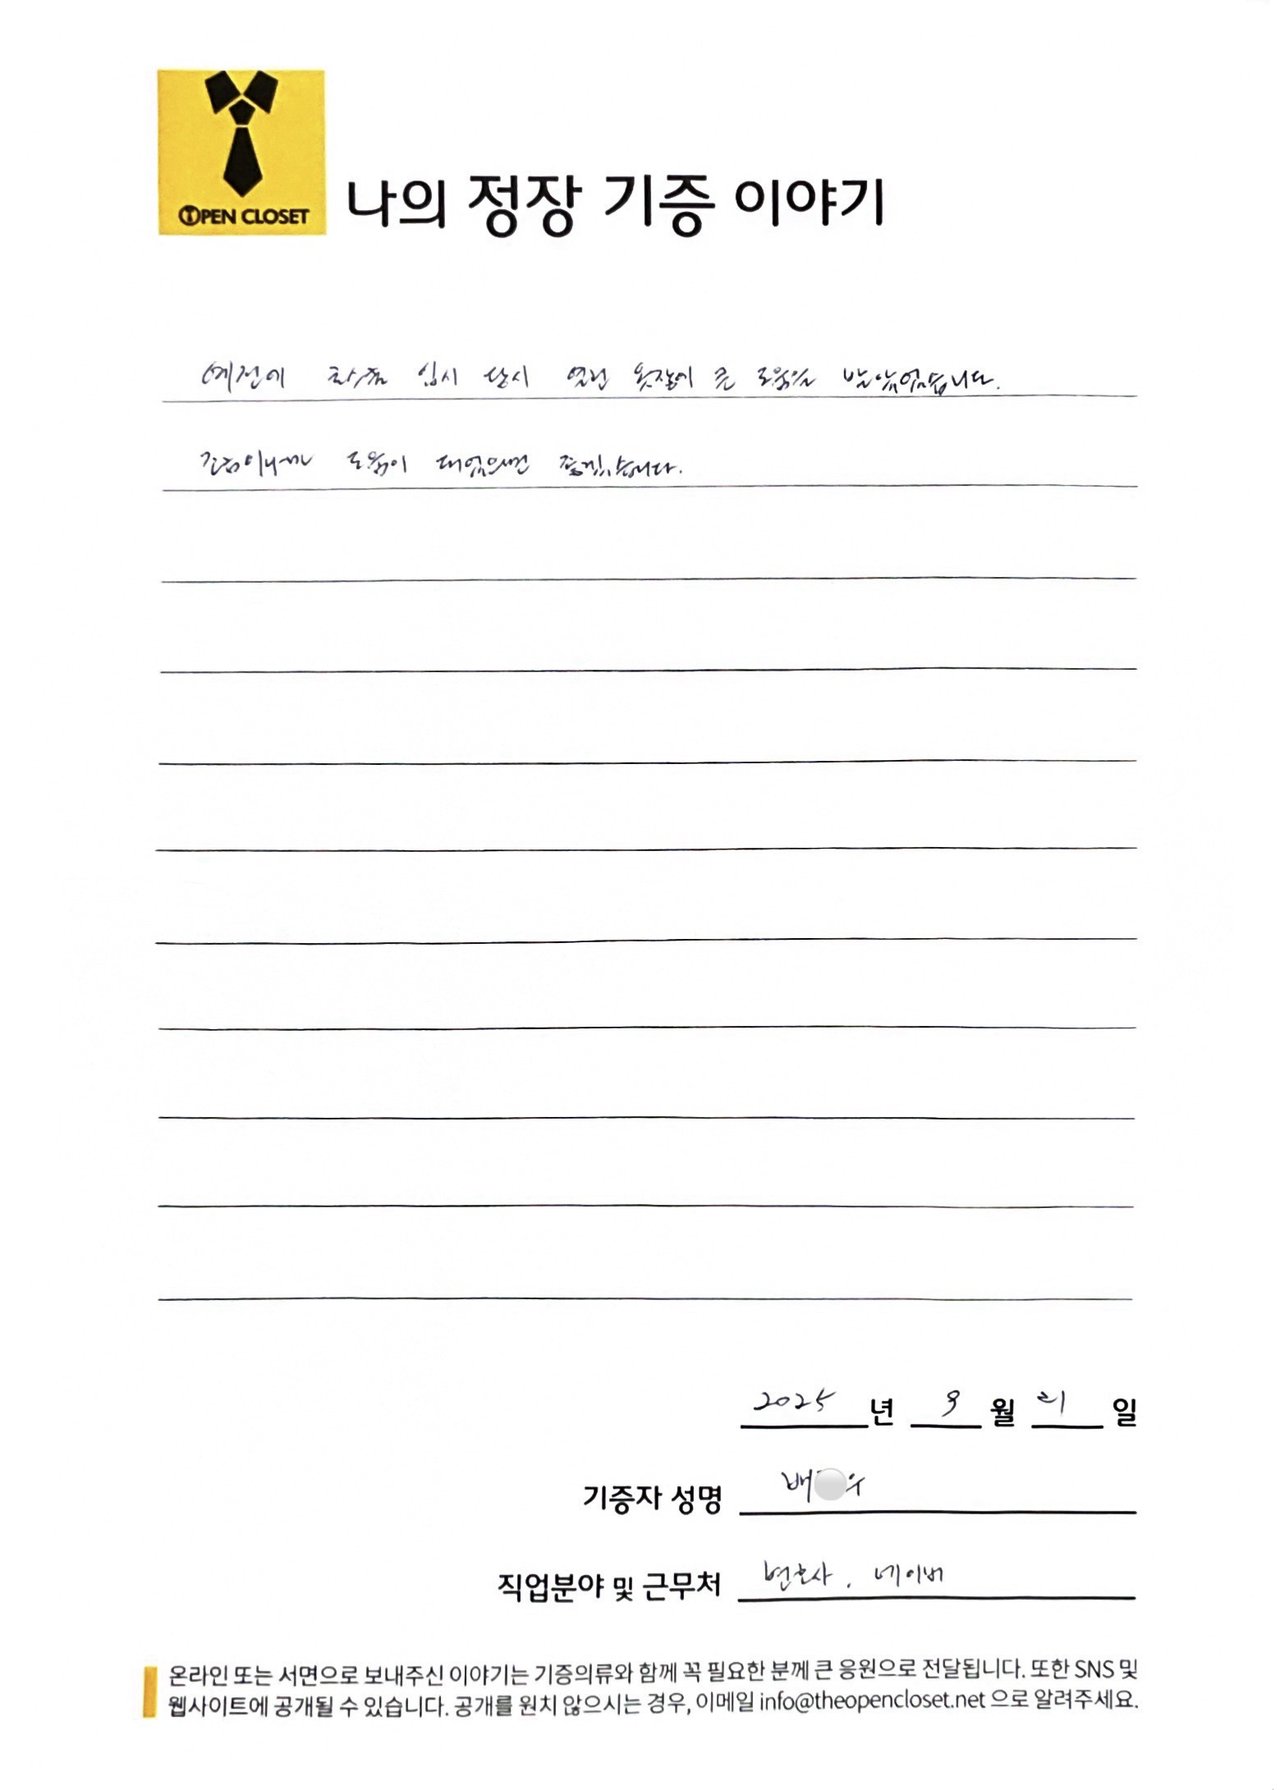 OPEN CLOSET
나의 정장 기증 이야기
예전에 입시 당시 열린 옷장에 큰 도움을 받았었습니다.
도움이 되었으면 좋겠습니다.
2025 년 9 월 21 일
기증자 성명 배 우
직업분야 및 근무처 변호사, 네이버
온라인 또는 서면으로 보내주신 이야기는 기증의류와 함께 꼭 필요한 분께 큰 응원으로 전달됩니다. 또한 SNS 및
웹사이트에 공개될 수 있습니다. 공개를 원치 않으시는 경우, 이메일 info@theopencloset.net 으로 알려주세요.